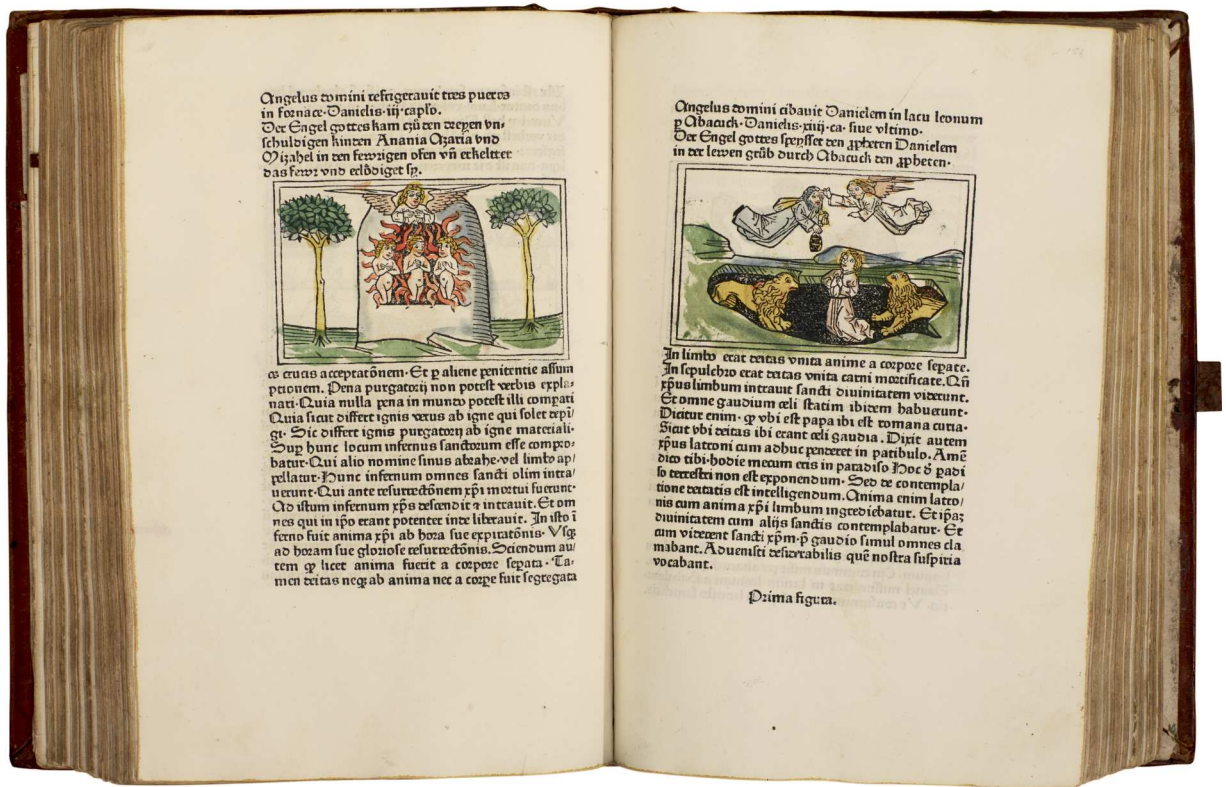 Angelus domini refrigeravit tres pueros
in fornace· Danielis·iij·caplo.
Der Engel gottes kam czů den dreyen vn-
schuldigen kinden Anania Azaria vnd
Mizahel in den fewrigen ofen vn̄ erkeltet
das fewr vnd erlȯdiget sy.
co crucis acceptatōnem· Et ꝑ aliene penitentie assum
ptionem. Pena purgatorij non potest verbis expla/
nari· Quia nulla pena in mundo potest illi compari
Quia sicut differt ignis verus ab igne qui solet depi/
gi· Sic differt ignis purgatorij ab igne materiali·
Suꝑ hunc locum infernus sanctorum esse compro/
batur· Qui alio nomine sinus abrahe· vel limbo ap/
pellatur· Hunc infernum omnes sancti olim intra/
uerunt· Qui ante resurrectōnem xp̄i mortui fuerunt·
Ad istum infernum xp̄s descendit ⁊ intrauit. Et om
nes qui in ip̄o erant potenter inde liberauit. In isto ī
ferno fuit anima xp̄i ab hora sue expiratōnis· Vsqꝫ
ad horam sue gloriose resurrectōnis. Sciendum au/
tem ꝙ licet anima fuerit a corpore seꝑata· Ta-
men deitas neqꝫ ab anima nec a corꝑe fuit segregata
Angelus domini cibavit Danielem in lacu leonum
ꝑ Abacuck· Danielis·xiiij·ca· siue vltimo·
Der Engel gottes speysset den ꝓpheten Danielem
in der lewen grůb durch Abacuck den ꝓpheten·
In limbo erat deitas vnita anime a corpore seꝑate.
In sepulchro erat deitas vnita carni mortificate. Qn̄
xp̄us limbum intrauit sancti diuinitatem viderunt.
Et omne gaudium celi statim ibidem habuerunt·
Dicitur enim· ꝙ vbi est papa ibi est romana curia·
Sicut vbi deitas ibi erant celi gaudia. Dixit autem
xp̄us latroni cum adhuc penderet in patibulo. Amē
dico tibi· hodie mecum eris in paradiso Hoc ð padi
so terrestri non est exponendum· Sed de contempla/
tione deitatis est intelligendum. Anima enim latro/
nis cum anima xp̄i limbum ingrediebatur. Et ip̄aꝫ
diuinitatem cum alijs sanctis contemplabatur· Et
cum viderent sancti xp̄m·p̄ gaudio simul omnes cla
mabant. Advenisti desiderabilis quē nostra suspiria
vocabant.
Prima figura.